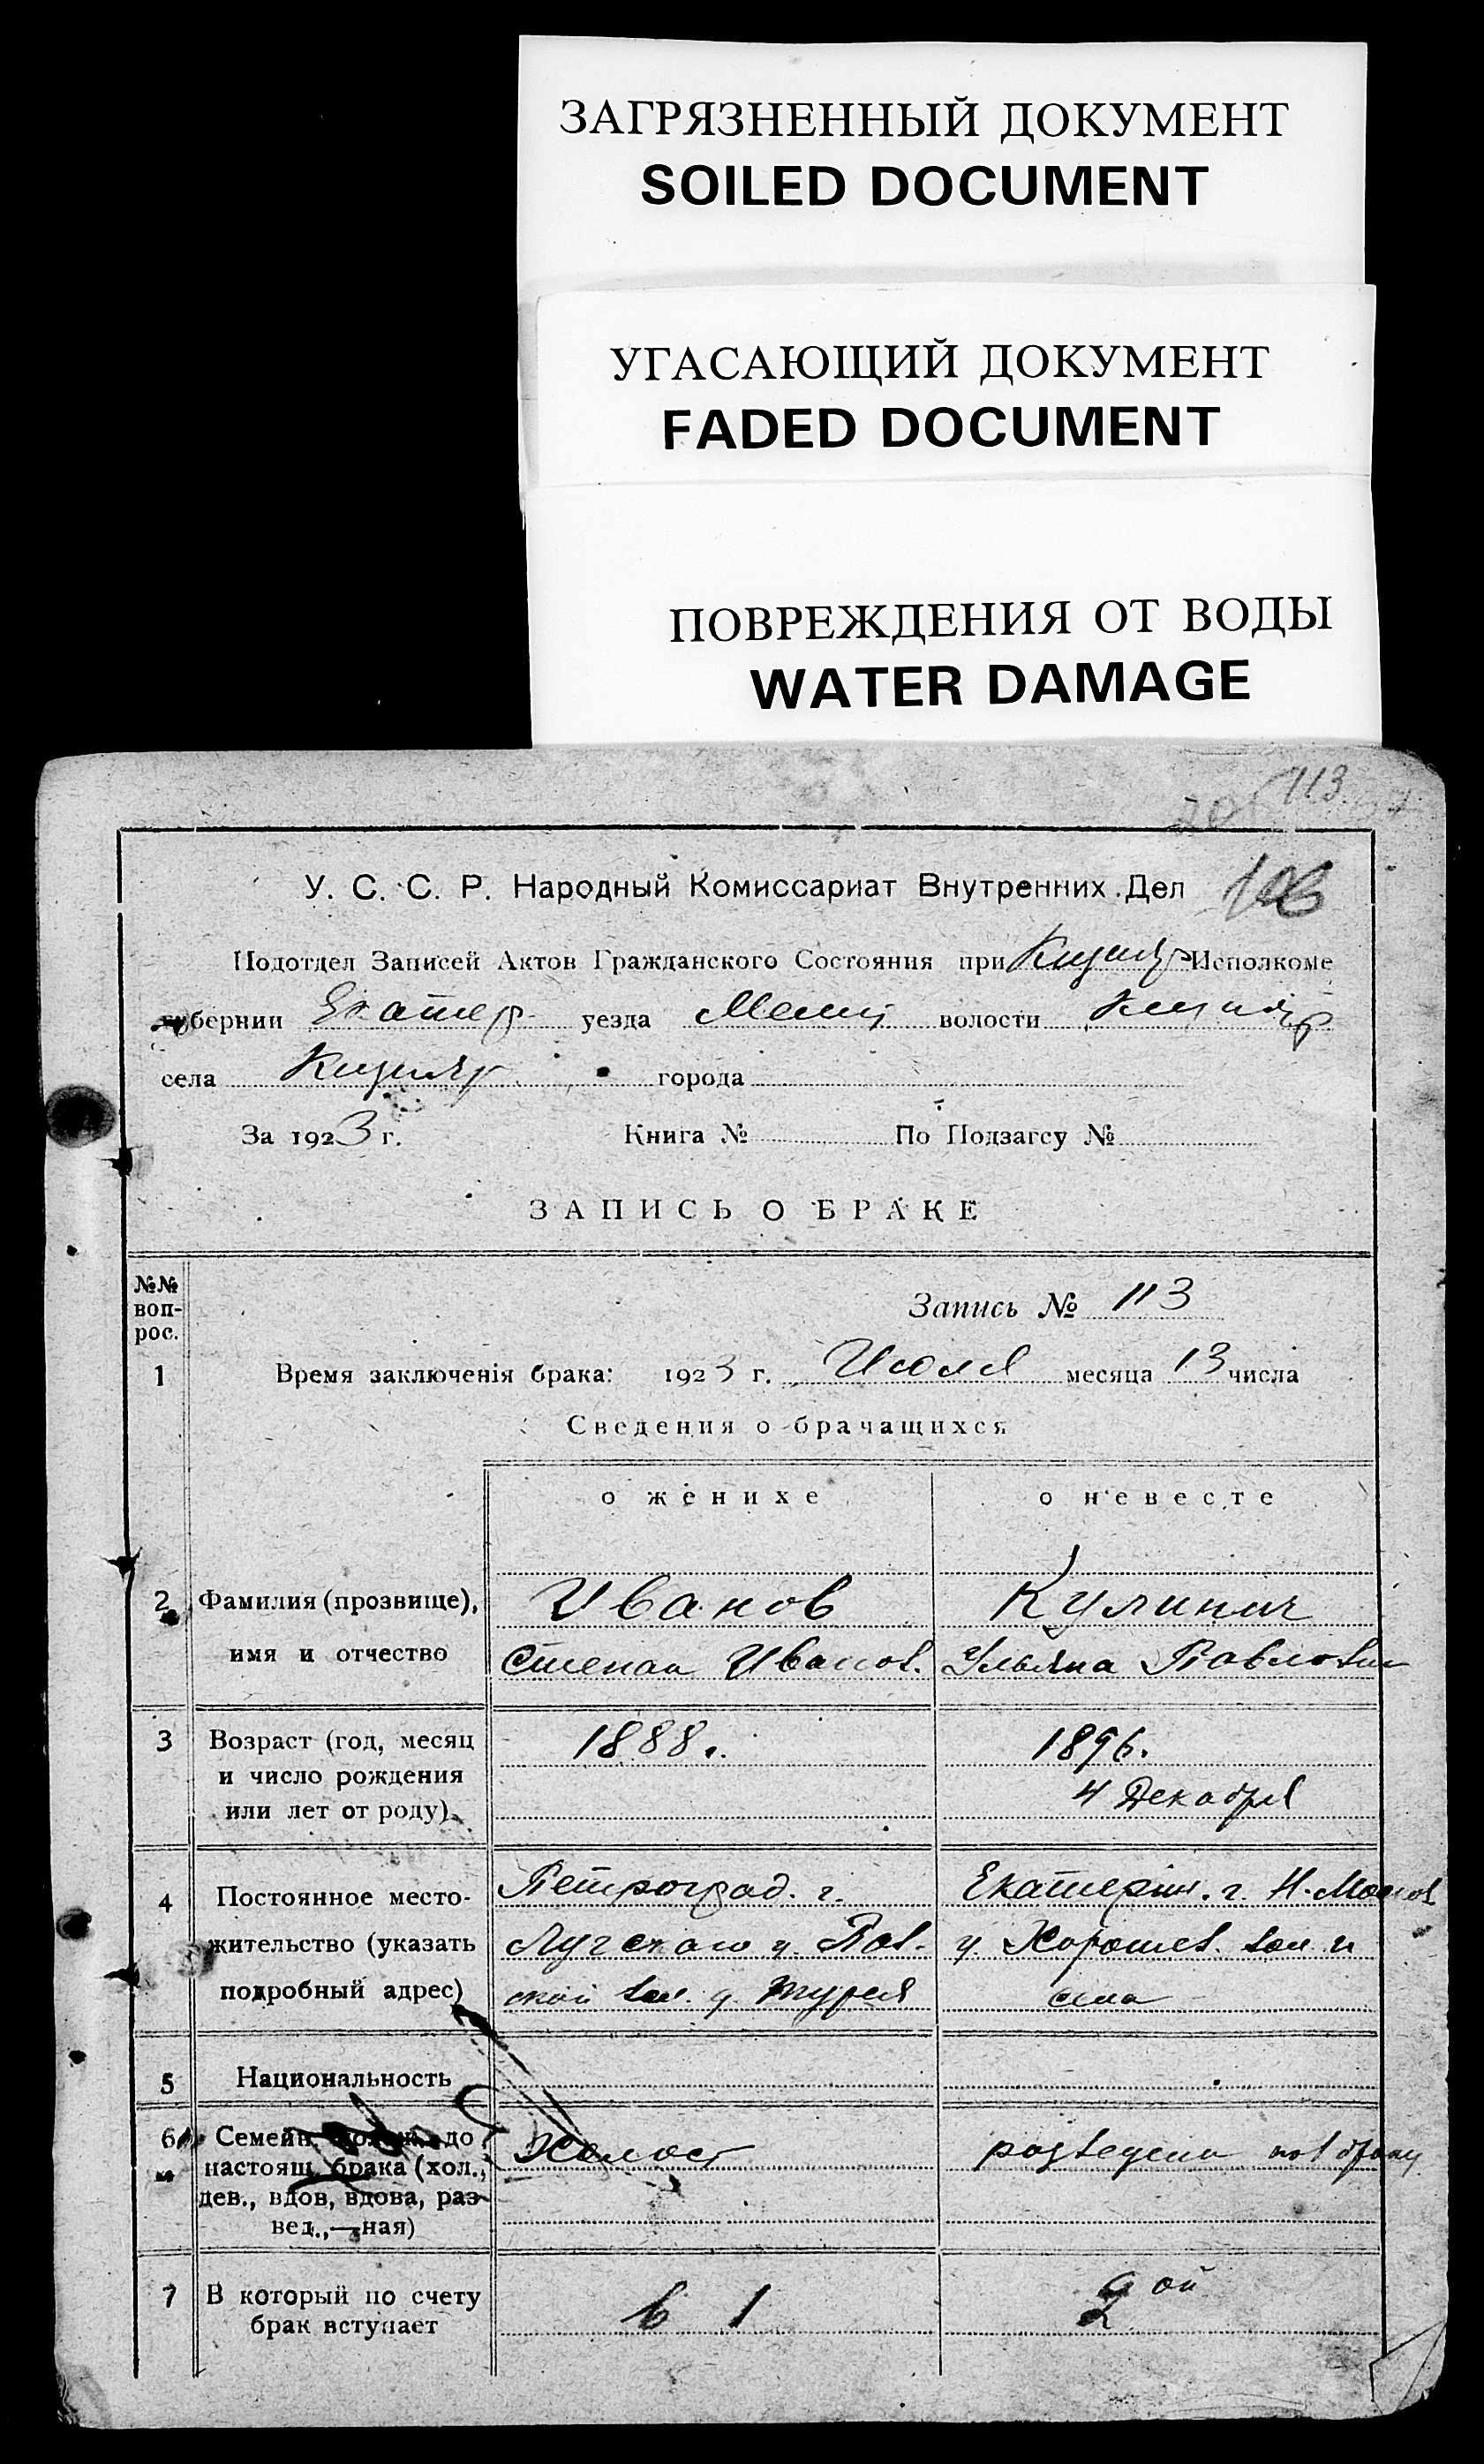 ЗАГРЯЗНЕННЫЙ ДОКУМЕНТ
SOILED DOCUMENT
УГАСАЮЩИЙ ДОКУМЕНТ
FADED DOCUMENT
ПОВРЕЖДЕНИЯ ОТ ВОДЫ
WATER DAMAGE
113
У. С. С. Р. Народный Комиссариат Внутренних Дел
Подотдел Записей Актов Гражданского Состояния при Кизияр Исполкоме
губернии Екатер уезда Мелит волости Кизияр
села Кизияр города
За 1923 г. Книга № По Подзагсу №
ЗАПИСЬ О БРАКЕ
№№ воп-
рос.
Запись № 113
1 Время заключенія брака: 1923 г. Июля месяца 13 числа
Сведения о брачащихся
о женихе о невесте
2 Фамилия (прозвище), Иванов Кулинич
имя и отчество Степан Иванов. Ульяна Павловн
3 Возраст (год, месяц 1888. 1896.
и число рождения 4 Декабря
или лет от роду)
4 Постоянное место- Петроград. г. Екатерин. г. Н. Москов
жительство (указать Лугского у. Пав- у. Хорошев. вол и
подробный адрес) ской вол. д. Турея села
5 Национальность
6 Семейн. полож. до Холост разведена по 1 браку
настоящ. брака (хол.,
дев., вдов, вдова, раз-
вед.,—ная)
7 В который по счету в 1 2 ой
брак вступает